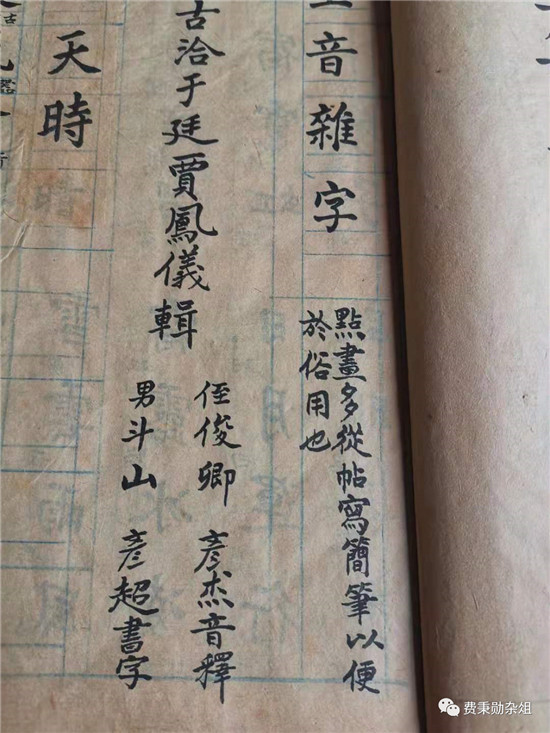 音雜字
點畫多從帖寫簡筆以便
於俗用也
古洽于廷賈鳳儀輯
侄俊卿 彥杰音釋
男斗山 彥超書字
天時
费秉勋杂俎